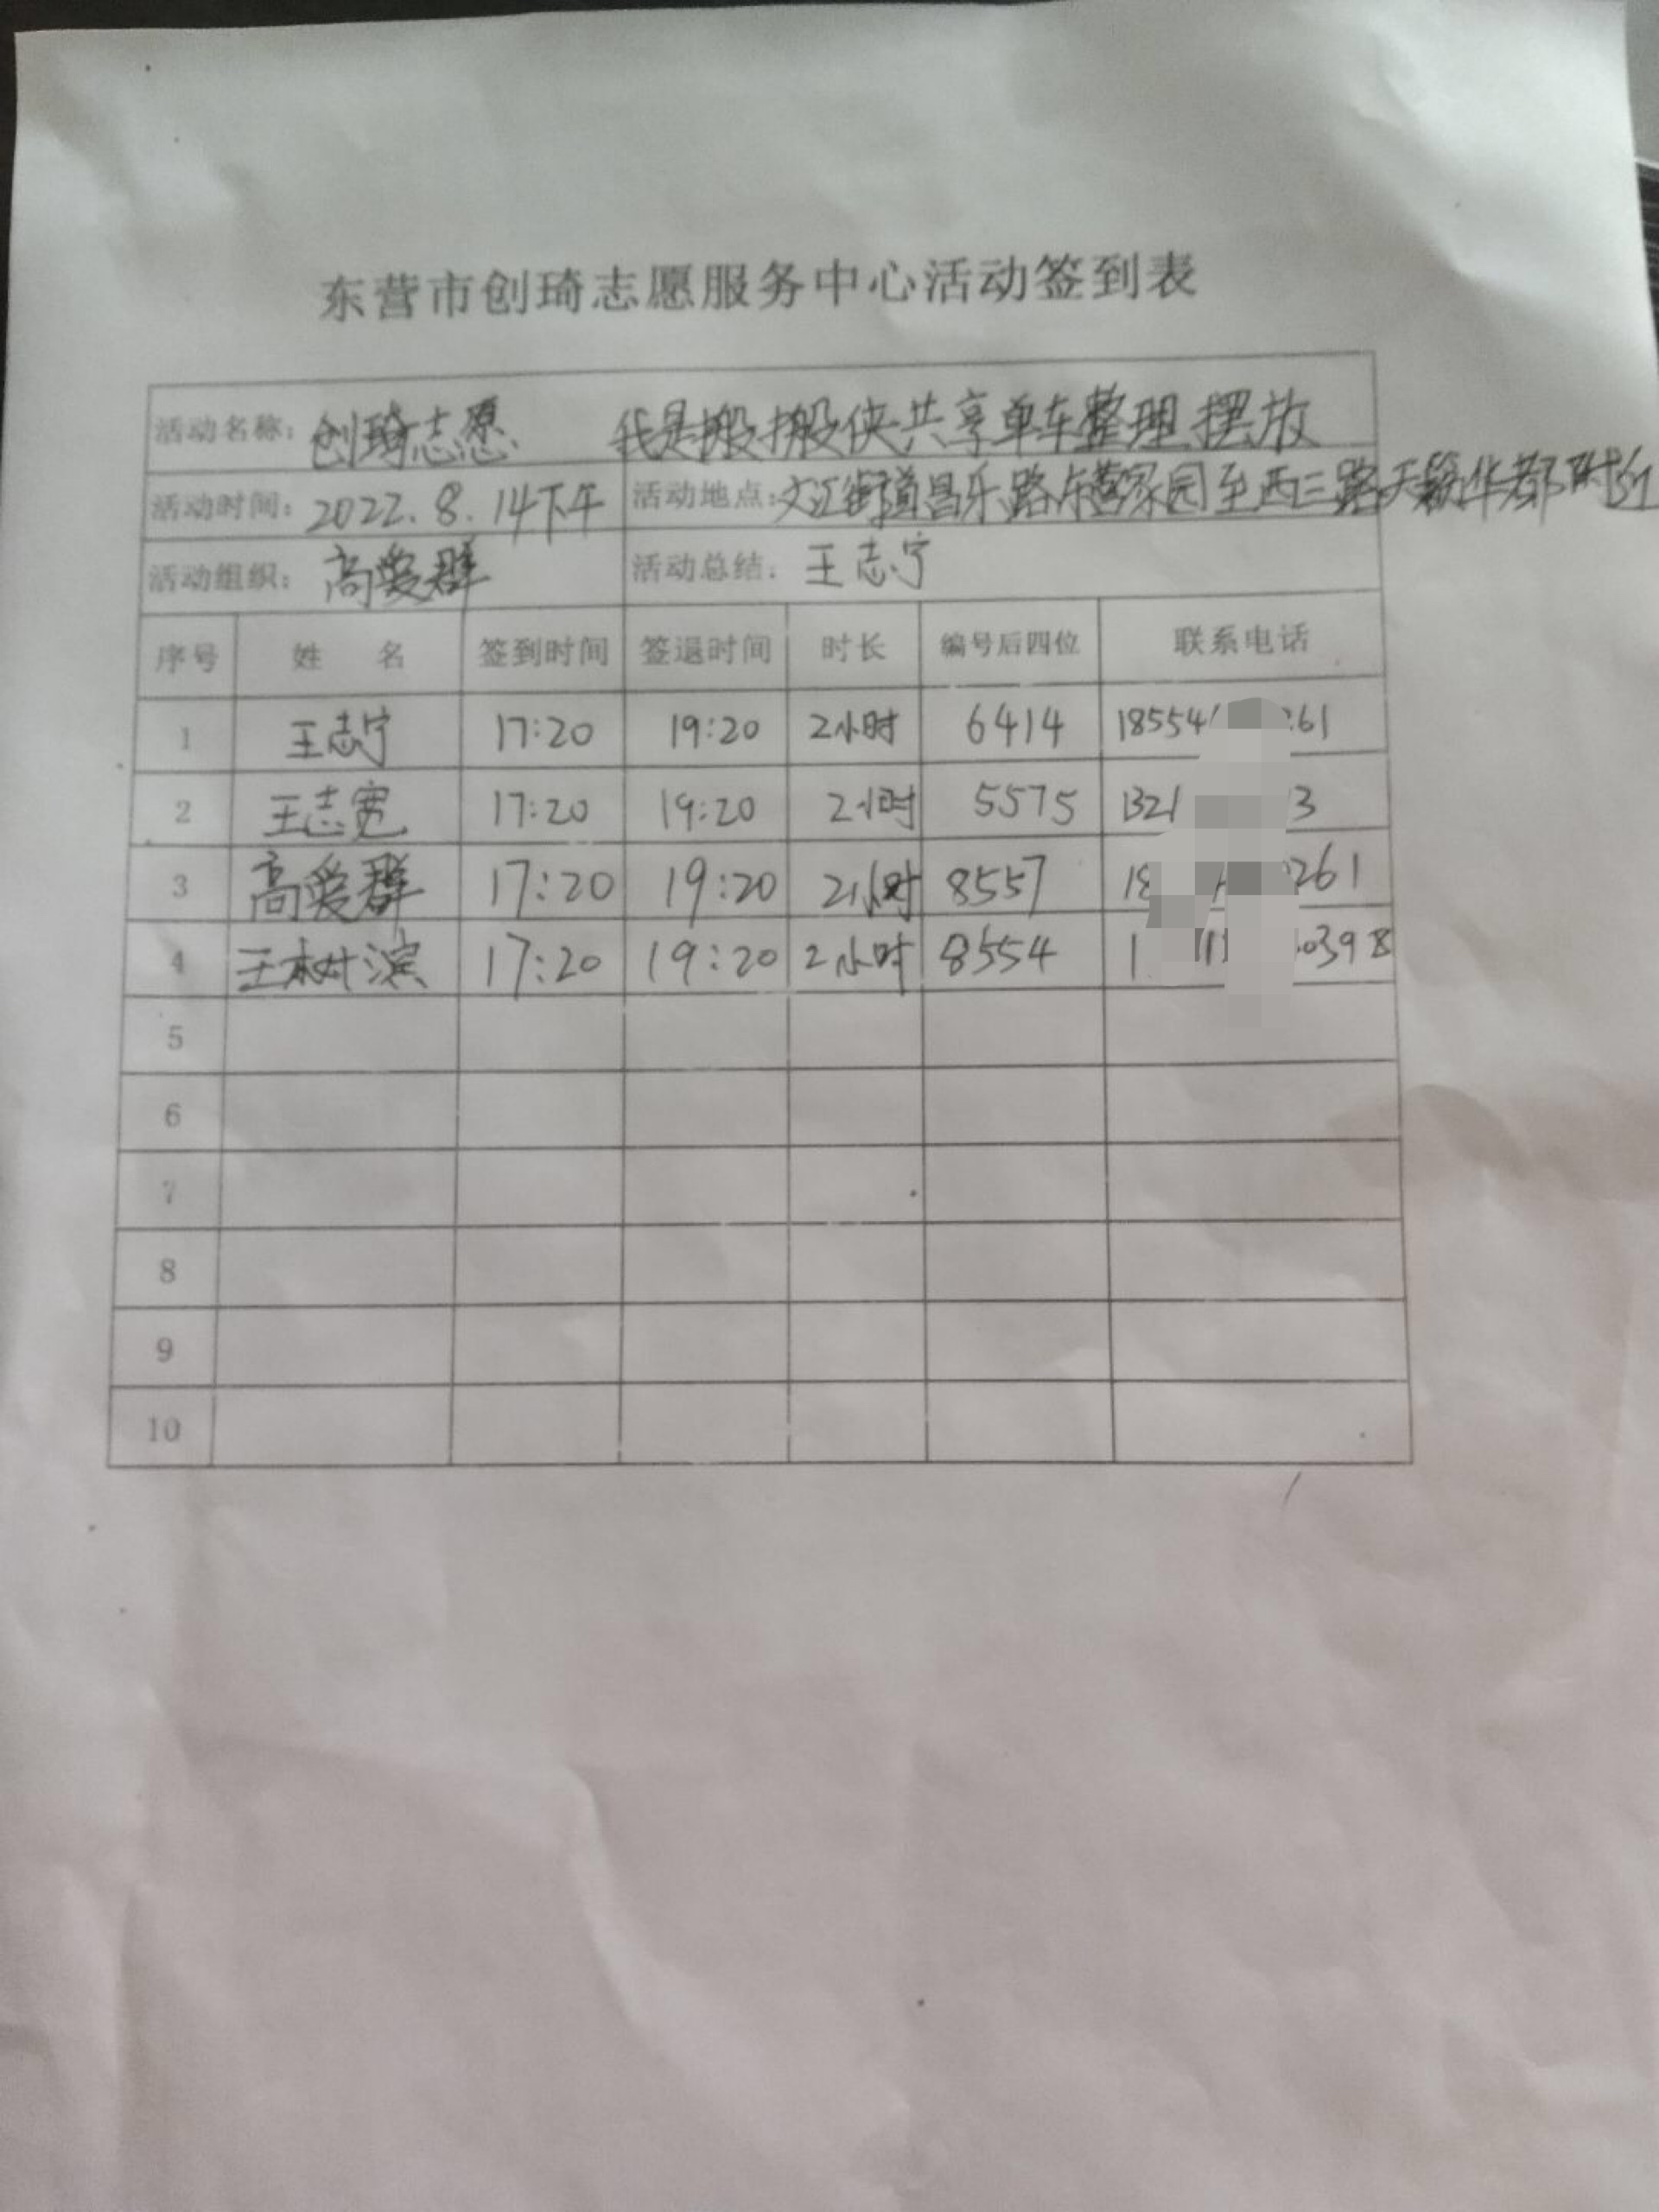 东营市创琦志愿服务中心活动签到表
活动名称: 创琦志愿 我是搬搬侠共享单车整理摆放
活动时间: 2022.8.14下午 活动地点: 文汇街道昌乐路东营家园至西三路天颐华都附近
活动组织: 高爱群 活动总结: 王志宁
序号 姓 名 签到时间 签退时间 时长 编号后四位 联系电话
1 王志宁 17:20 19:20 2小时 6414 18554 261
2 王志宽 17:20 19:20 2小时 5575 1321 3
3 高爱群 17:20 19:20 2小时 8557 18 261
4 王树滨 17:20 19:20 2小时 8554 1 0398
5
6
7
8
9
10